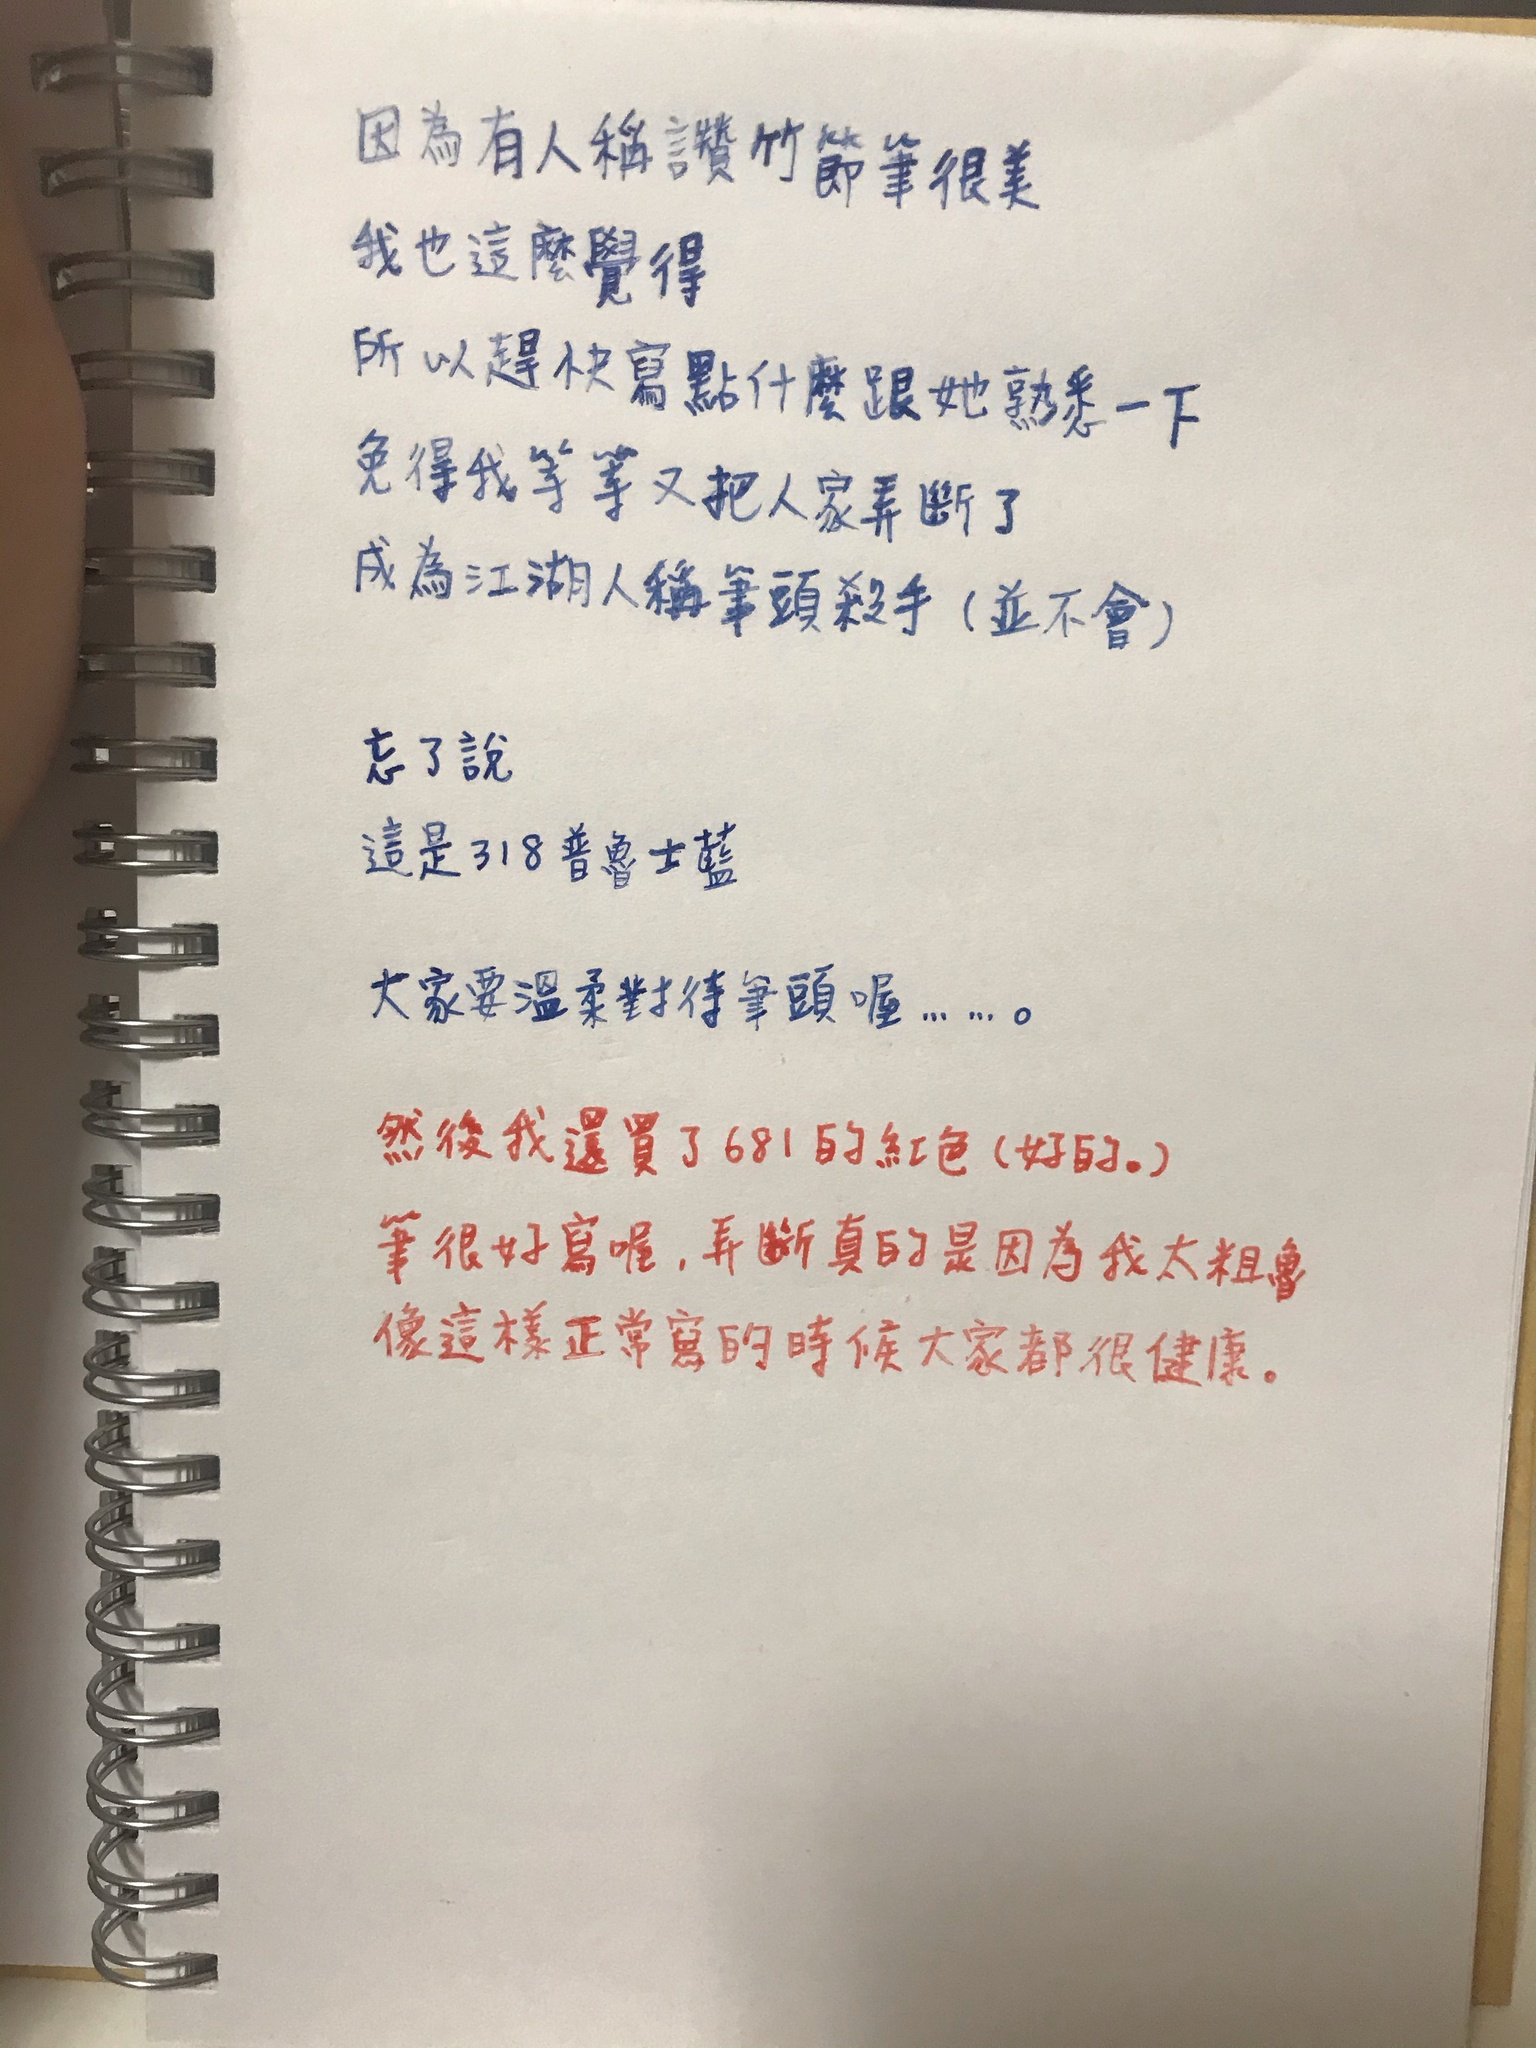 因為有人稱讚竹節筆很美
我也這麼覺得
所以趕快寫點什麼跟她熟悉一下
免得我等等又把人家弄斷了
成為江湖人稱筆頭殺手（並不會）
忘了說
這是318普魯士藍
大家要溫柔對待筆頭喔……。
然後我還買了681的紅色（好的。）
筆很好寫喔，弄斷真的是因為我太粗魯
像這樣正常寫的時候大家都很健康。